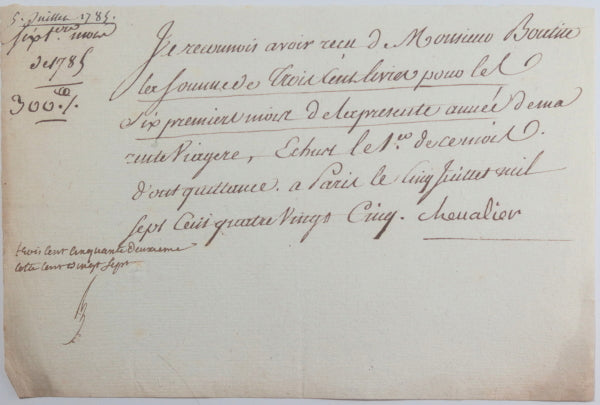 5. Juillet 1785.
Six p.ers mois
de 1785
300.#
Je reconnois avoir reçu de Monsieur Boutin
la somme de Trois Cent livres pour les
six premiers mois de la presente année de ma
rente Viagere, Echus le 1.er de ce mois.
dont quittance. a Paris le Cinq Juillet mil
sept Cent quatre Vingt Cinq. Chevalier
trois Cent Cinquante deuxieme
Cotte Cent vingt Sept